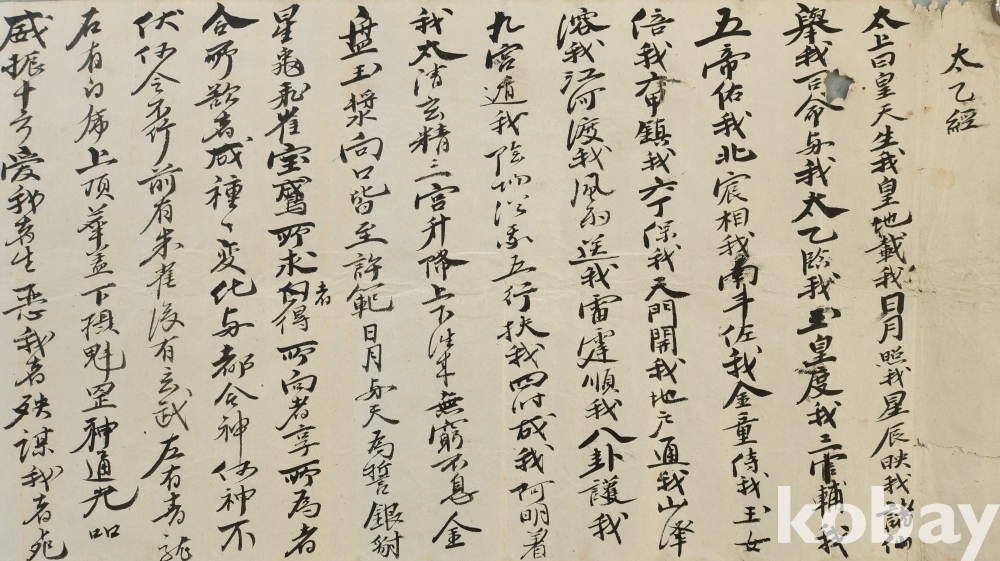 太乙經
太上曰皇天生我皇地載我日月照我星辰映我諸仙
舉我司命与我太乙臨我玉皇度我三官輔我
五帝佑我北宸相我南斗佐我金童侍我玉女
陪我六甲鎮我六丁保我天門開我地户通我山澤
溶我江河渡我風雨送我雷霆順我八卦護我
九宮遁我陰陽從我五行扶我四时成我阿明着
我太清玄精三宮升降上下往来無窮不息金
盘玉漿向口皆至許範日月与天為誓
星飛 所求者得所向者享所為者
合所欲者成種々变化与都合神何神不
伏何令不行前有朱雀後有玄武左有青龍
右有白席上頂華盖下摂魁罡神通光
威振十方愛我者生惡我者殃謀我者死
kobay